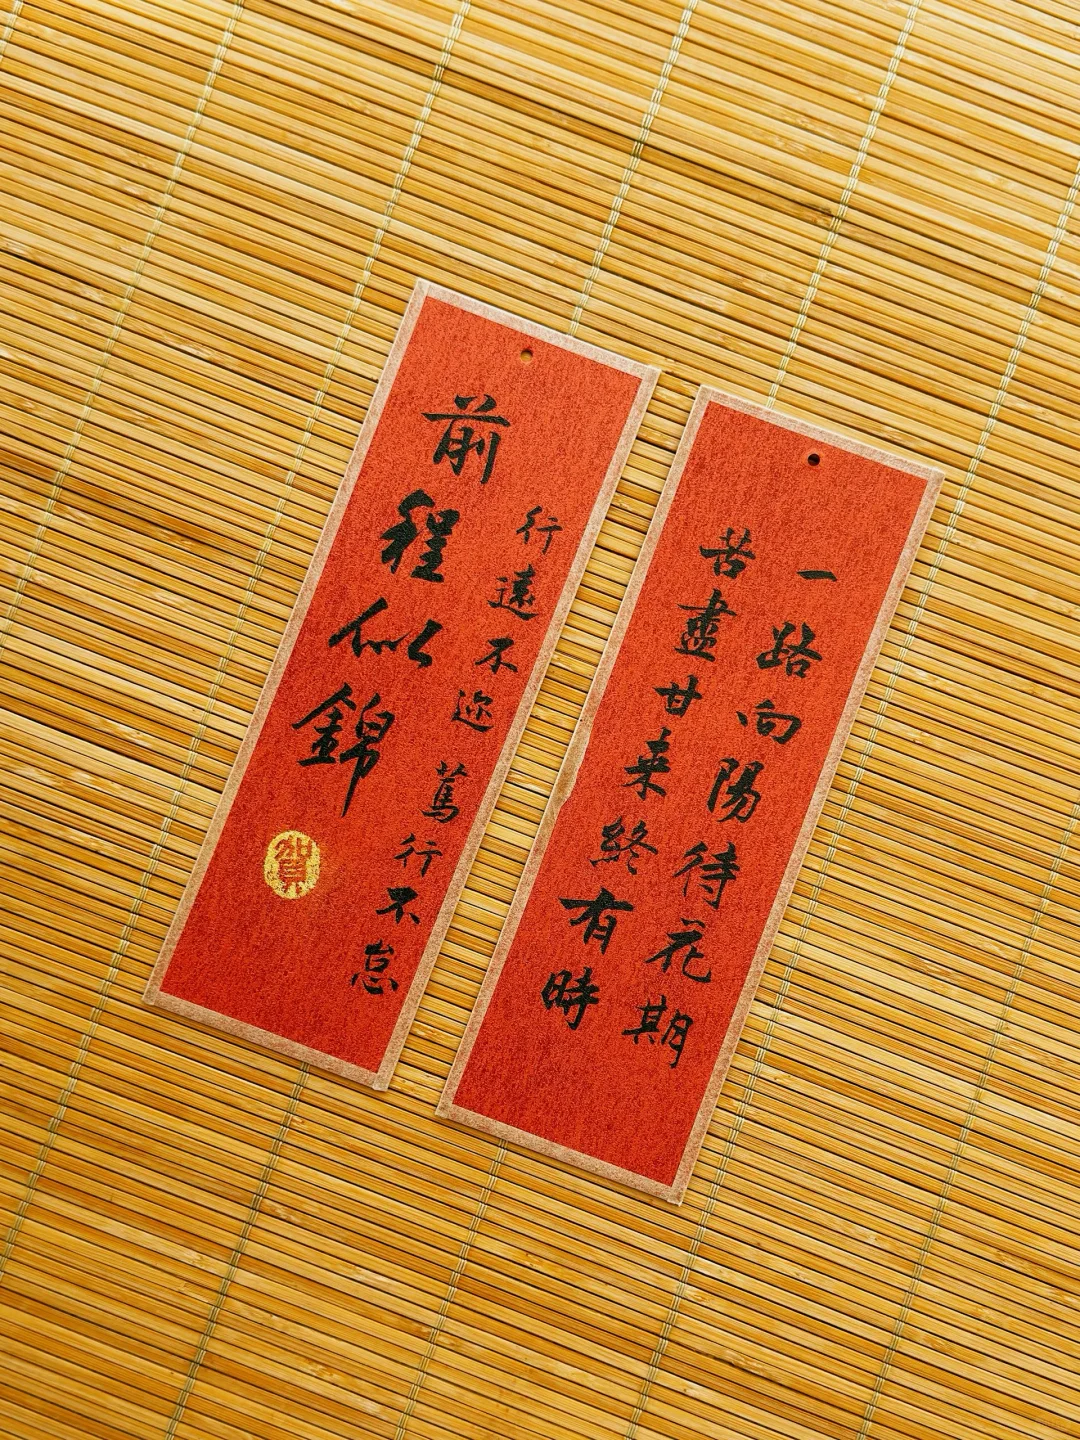 一路向陽待花期
苦盡甘来終有時
行遠不迩 篤行不怠
前程似錦
賀